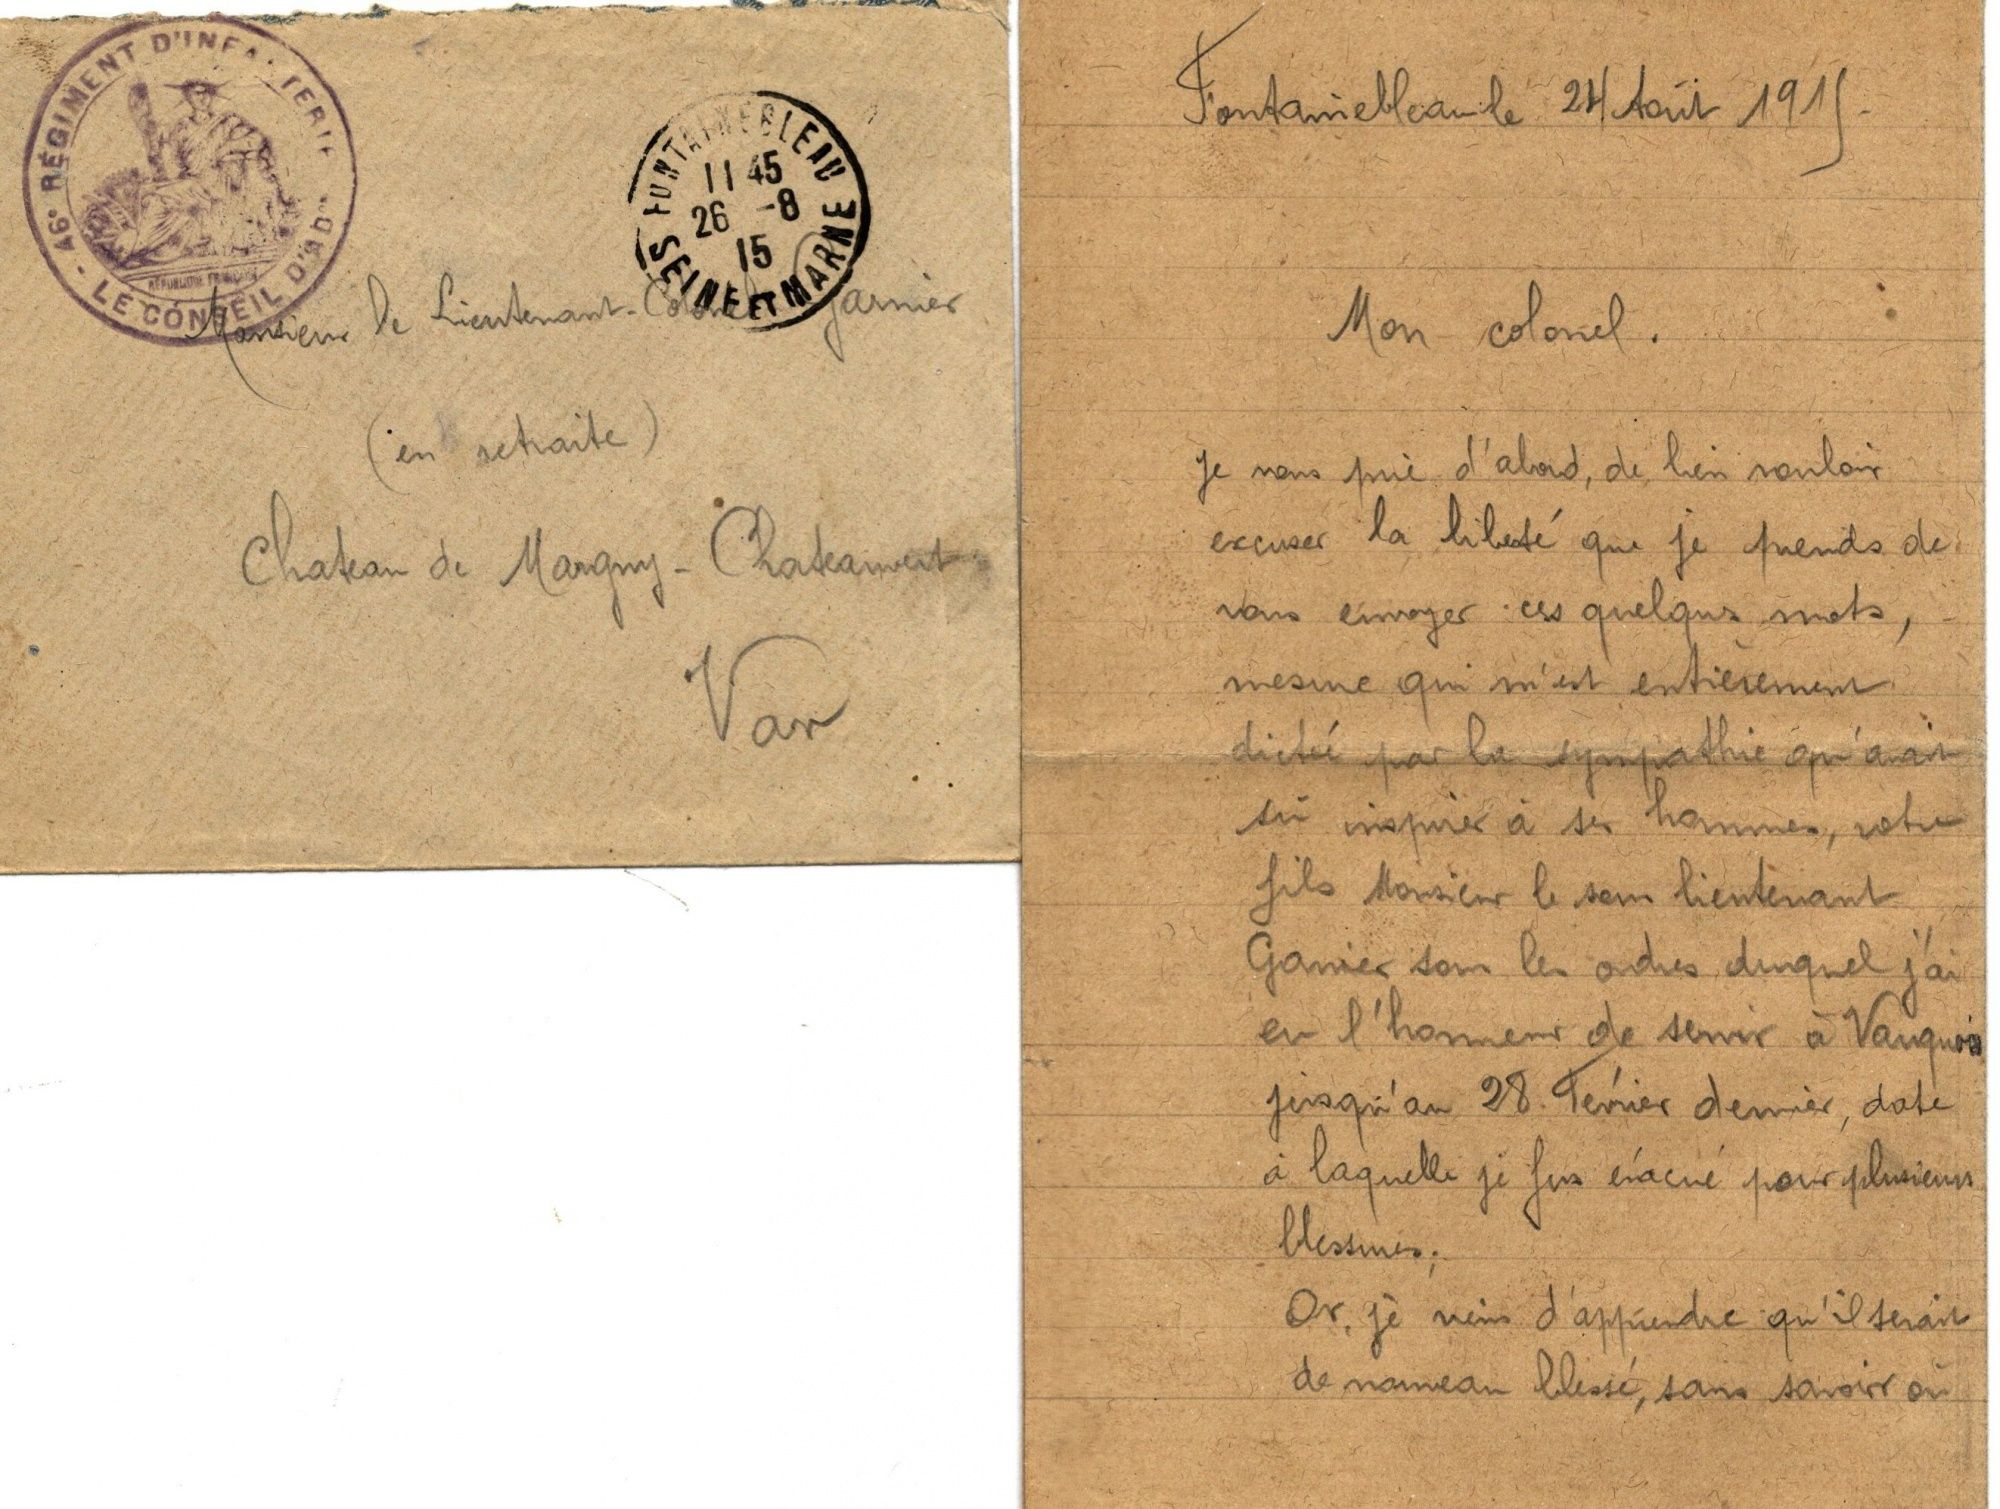 46e RÉGIMENT D'INFANTERIE
- LE CONSEIL D'AD
RÉPUBLIQUE FRANÇAISE
FONTAINEBLEAU
11 45
26 -8
15
SEINE ET MARNE
Monsieur le Lieutenant-Colonel Garnier
(en retraite)
Chateau de Margny - Chateauvert
Var
Fontainebleau le 24 Août 1915.
Mon colonel.
Je vous prie d'abord, de bien vouloir
excuser la liberté que je prends de
vous envoyer ces quelques mots,
mesure qui m'est entièrement
dictée par la sympathie qu'avait
sû inspirer à ses hommes, votre
fils Monsieur le sous lieutenant
Garnier sous les ordres duquel j'ai
eu l'honneur de servir à Vauquois
jusqu'au 28 Février dernier, date
à laquelle je fus évacué pour plusieurs
blessures.
Or, je viens d'apprendre qu'il serait
de nouveau blessé, sans savoir où